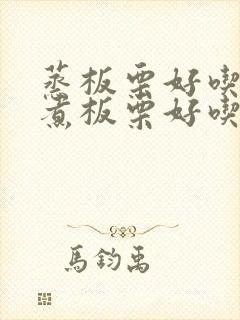 蒸板栗好喫
煮板栗好喫
馬鈞禹